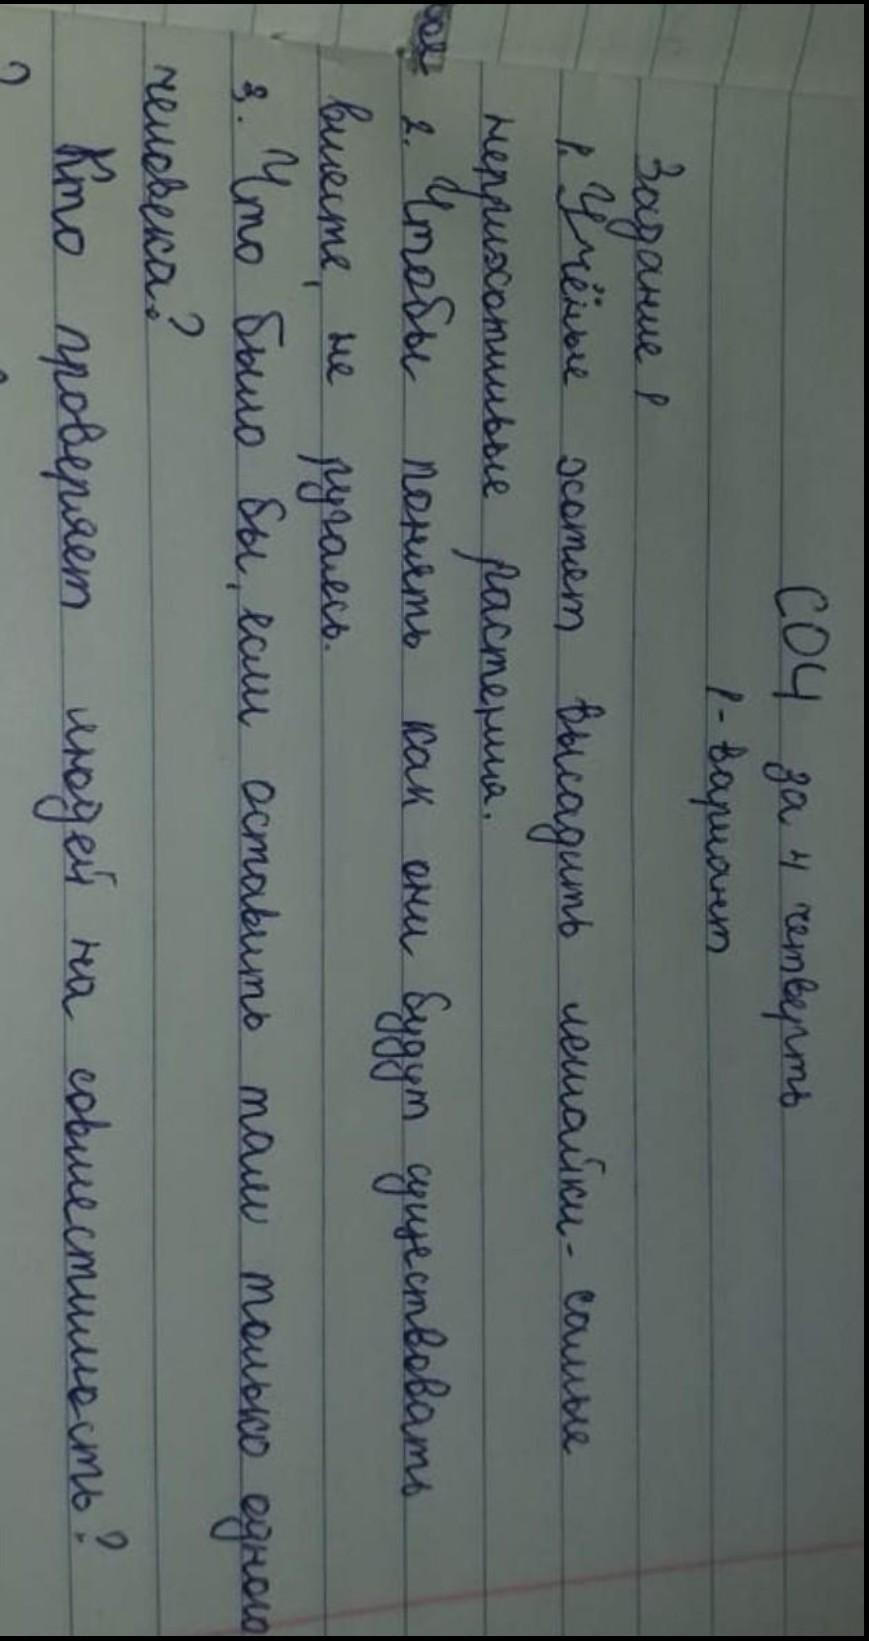 СОЧ за 4 четверть
1-вариант
Задание 1
1. Учёные хотят высадить лешайки-самые
неприхотливые растения.
2. Чтобы понять как они будут существовать
вместе, не ругаясь.
3. Что было бы, если оставить там только одного
человека?
Кто проверяет людей на совместимость?
?